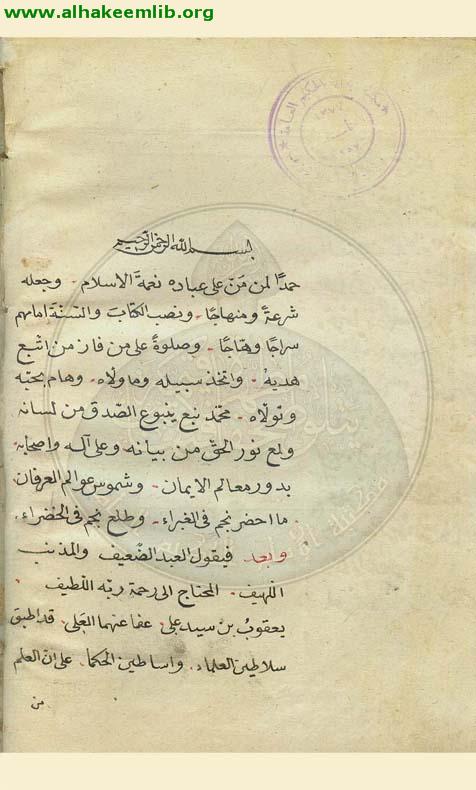 www.alhakeemlib.org
بسم الله الرحمن الرحيم
حمدًا لمن مَنّ على عباده نعمةَ الاسلام وجعله
شرعةً ومنهاجًا ونصب الكتاب والسنة امامهم
سراجًا وهّاجًا وصلوةً على من فاز من اتبع
هديه واتخذ سبيله وما ولاه وهام بحبّه
وتولاه محمّد نبع ينبوع الصّدق من لسانه
ولمع نور الحقّ من بيانه وعلى آله واصحابه
بدور معالم الايمان وشموس عوالم العرفان
ما اخضر نجم فى الغبراء وطلع نجم فى الخضراء
وبعد فيقول العبد الضّعيف والمذنب
اللهيف المحتاج الى رحمة ربّه اللطيف
يعقوبُ بن سيد على عفا عنهما العَلى قد اطبق
سلاطين العلماء واساطين الحكما على ان العلم
من